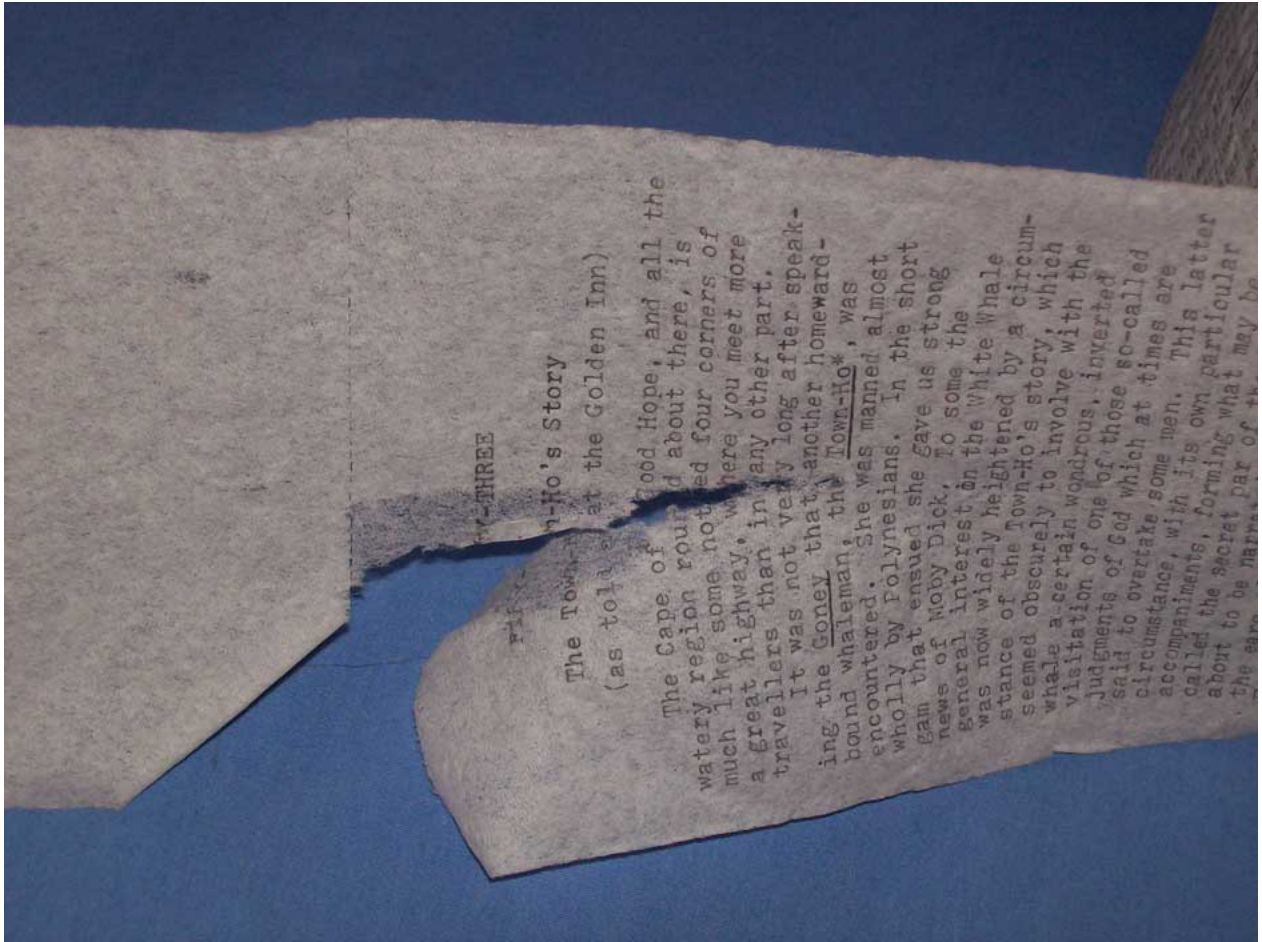 FIF Y-THREE
The Tow n-Ho's Story
(as told at the Golden Inn)
The Cape of Good Hope, and all the
watery region round about there, is
much like some noted four corners of
a great highway, where you meet more
travellers than in any other part.
It was not very long after speak-
ing the Goney that another homeward-
bound whaleman, the Town-Ho*, was
encountered. She was manned almost
wholly by Polynesians. In the short
gam that ensued she gave us strong
news of Moby Dick. To some the
general interest in the White Whale
was now widely heightened by a circum-
stance of the Town-Ho's story, which
seemed obscurely to involve with the
whale a certain wondrous, inverted
visitation of one of those so-called
judgments of God which at times are
said to overtake some men. This latter
circumstance, with its own particular
accompaniments, forming what may be
called the secret part of the
about to be narra
the ears